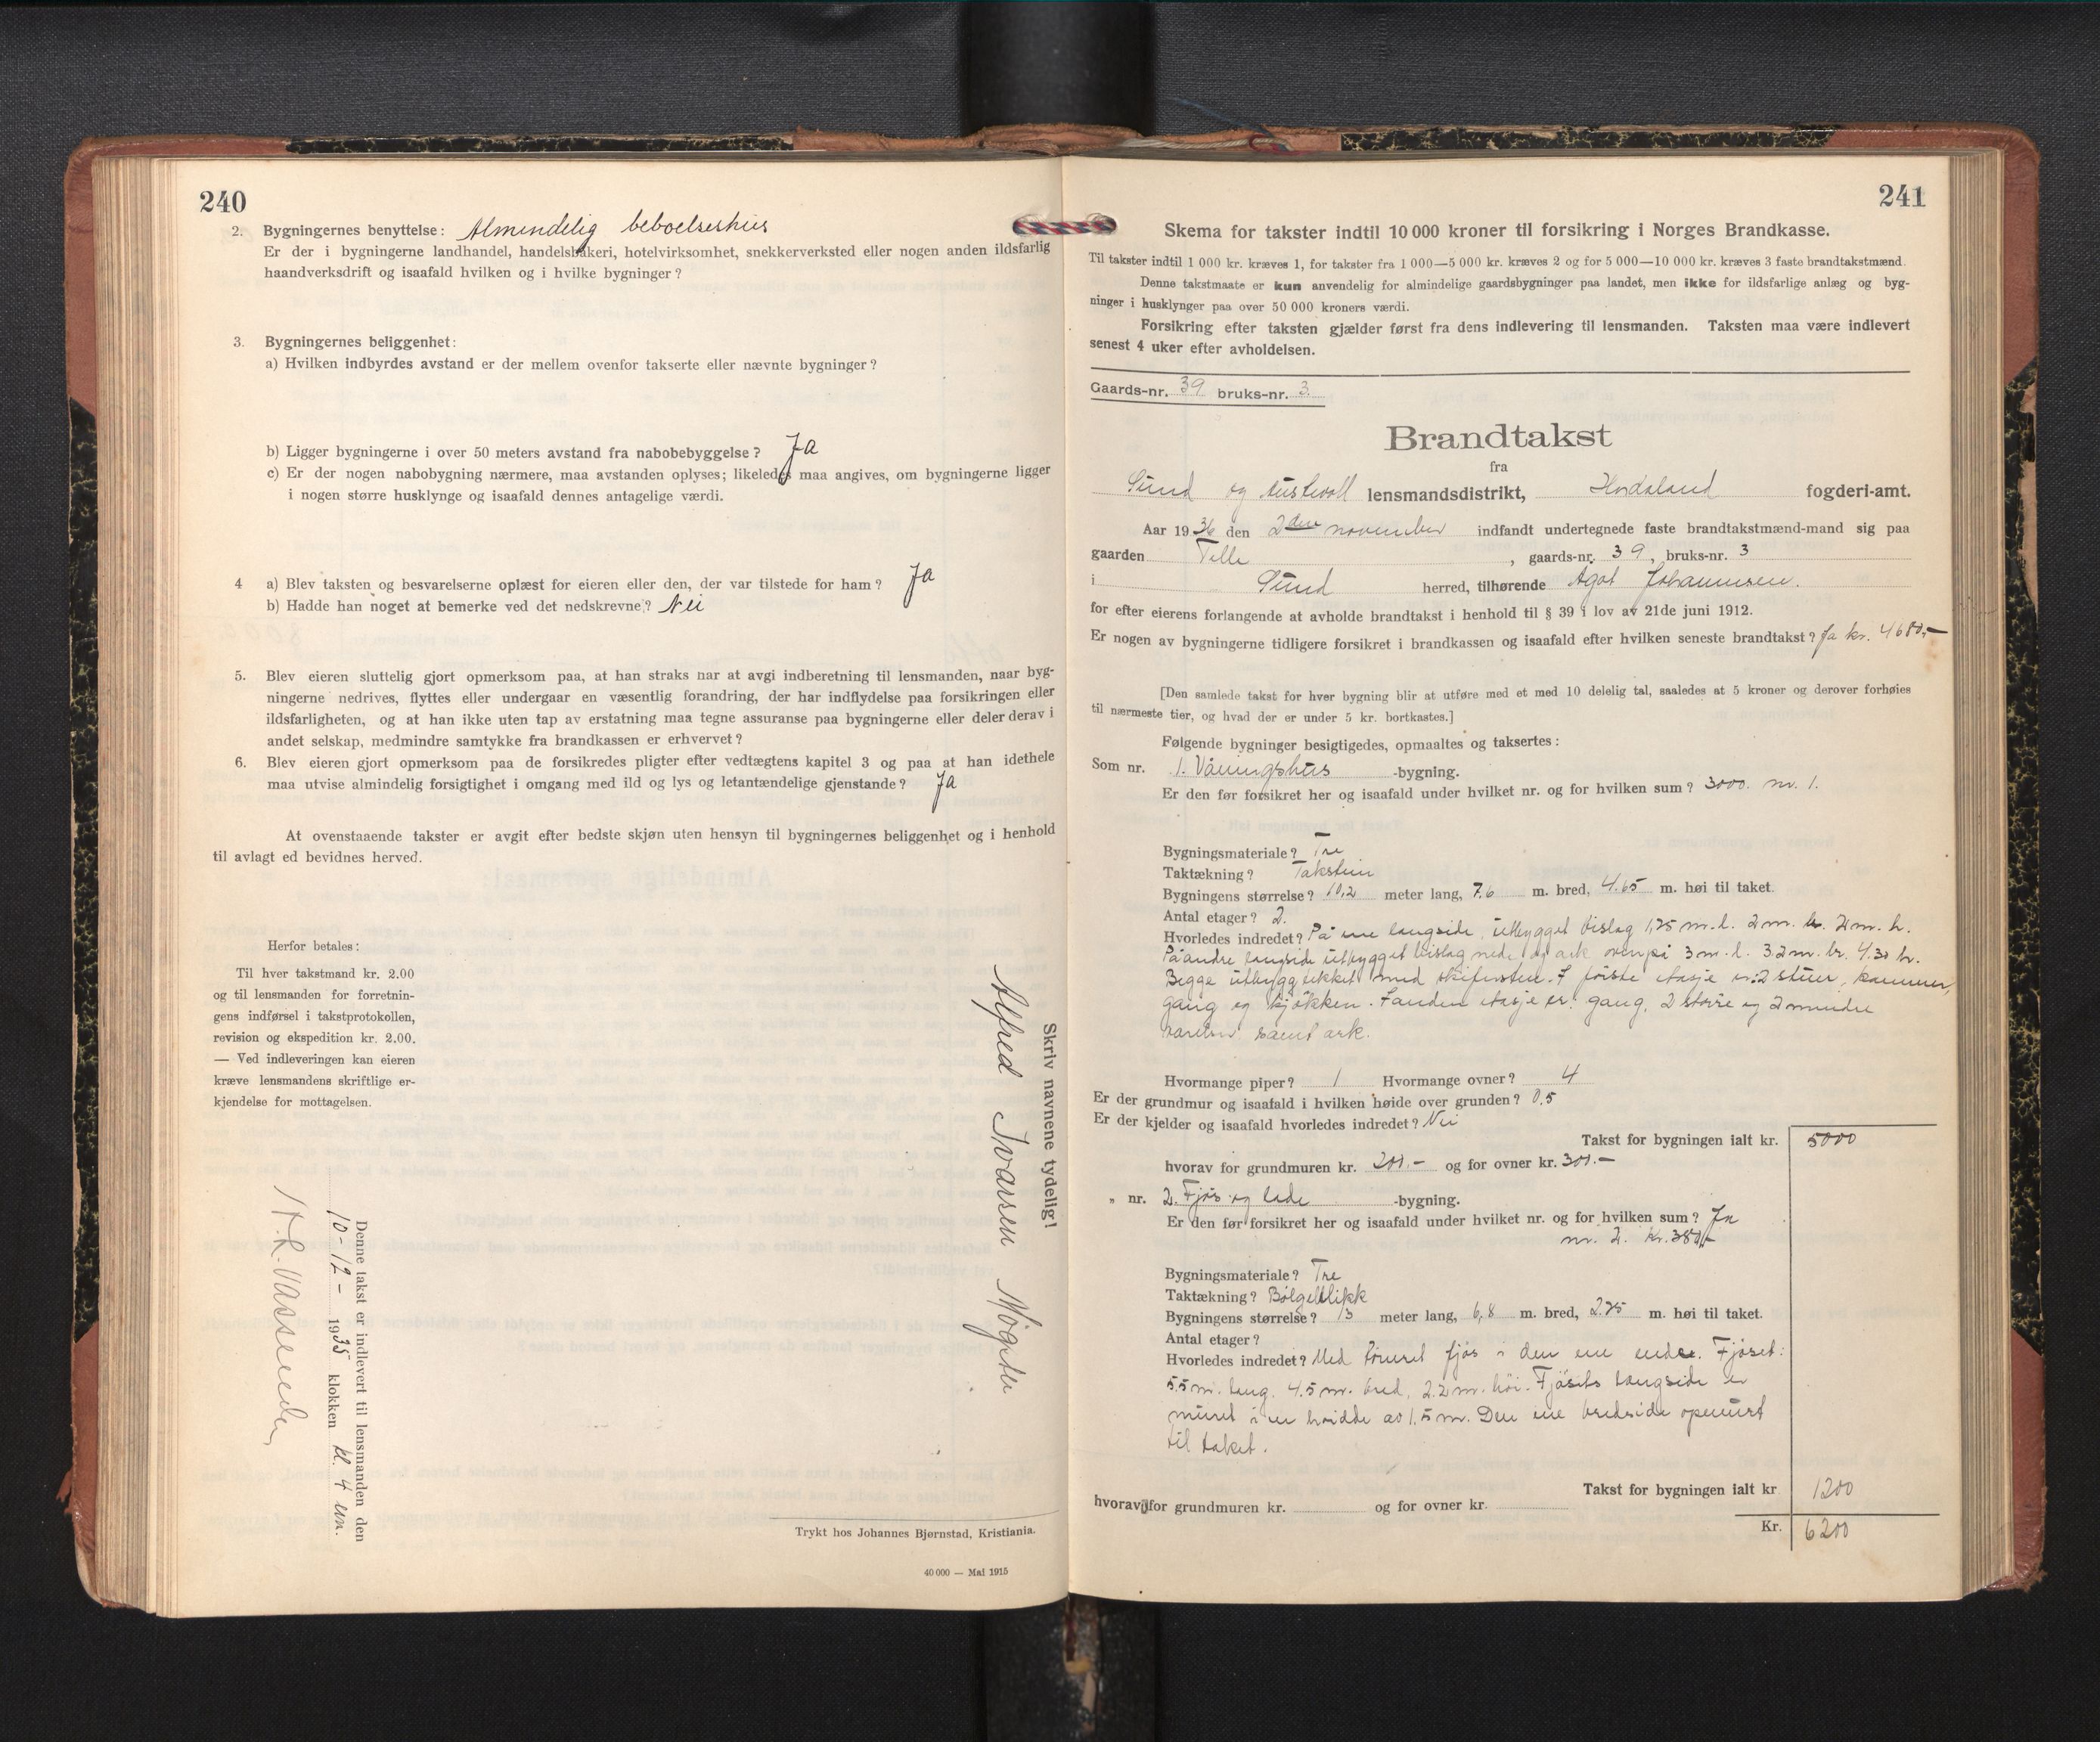 240
2. Bygningernes benyttelse: Almindelig beboelseshus
Er der i bygningerne landhandel, handelsbakeri, hotelvirksomhet, snekkerverksted eller nogen anden ildsfarlig
haandverksdrift og isaafald hvilken og i hvilke bygninger?
3. Bygningernes beliggenhet:
a) Hvilken indbyrdes avstand er der mellem ovenfor takserte eller nævnte bygninger?
b) Ligger bygningerne i over 50 meters avstand fra nabobebyggelse? Ja
c) Er der nogen nabobygning nærmere, maa avstanden oplyses; likeledes maa angives, om bygningerne ligger
i nogen større husklynge og isaafald dennes antagelige værdi.
4 a) Blev taksten og besvarelserne oplæst for eieren eller den, der var tilstede for ham? Ja
b) Hadde han noget at bemerke ved det nedskrevne? Nei
5. Blev eieren sluttelig gjort opmerksom paa, at han straks har at avgi indberetning til lensmanden, naar byg-
ningerne nedrives, flyttes eller undergaar en væsentlig forandring, der har indflydelse paa forsikringen eller
ildsfarligheten, og at han ikke uten tap av erstatning maa tegne assuranse paa bygningerne eller deler derav i
andet selskap, medmindre samtykke fra brandkassen er erhvervet?
6. Blev eieren gjort opmerksom paa de forsikredes pligter efter vedtægtens kapitel 3 og paa at han idethele
maa utvise almindelig forsigtighet i omgang med ild og lys og letantændelige gjenstande? Ja
At ovenstaaende takster er avgit efter bedste skjøn uten hensyn til bygningernes beliggenhet og i henhold
til avlagt ed bevidnes herved.
Herfor betales:
Til hver takstmand kr. 2.00
og til lensmanden for forretnin-
gens indførsel i takstprotokollen,
revision og ekspedition kr. 2.00.
— Ved indleveringen kan eieren
kræve lensmandens skriftlige er-
kjendelse for mottagelsen.
Skriv navnene tydelig!
Alfred Ivarsen Møgster
Denne takst er indlevert til lensmanden den
10-12- 1935 klokken kl. 4 em.
Trykt hos Johannes Bjørnstad, Kristiania.
40 000 — Mai 1915
241
Skema for takster indtil 10 000 kroner til forsikring i Norges Brandkasse.
Til takster indtil 1 000 kr. kræves 1, for takster fra 1 000—5 000 kr. kræves 2 og for 5 000—10 000 kr. kræves 3 faste brandtakstmænd.
Denne takstmaate er kun anvendelig for almindelige gaardsbygninger paa landet, men ikke for ildsfarlige anlæg og byg-
ninger i husklynger paa over 50 000 kroners værdi.
Forsikring efter taksten gjælder først fra dens indlevering til lensmanden. Taksten maa være indlevert
senest 4 uker efter avholdelsen.
Gaards-nr. 39 bruks-nr. 3.
Brandtakst
fra
Sund og Austevoll lensmandsdistrikt, Hordaland fogderi-amt.
Aar 1936 den 2den november indfandt undertegnede faste brandtakstmænd-mand sig paa
gaarden Telle, gaards-nr. 39, bruks-nr. 3
i Sund herred, tilhørende Agot Johannesen.
for efter eierens forlangende at avholde brandtakst i henhold til § 39 i lov av 21de juni 1912.
Er nogen av bygningerne tidligere forsikret i brandkassen og isaafald efter hvilken seneste brandtakst? Ja kr. 4680,-
[Den samlede takst for hver bygning blir at utføre med et med 10 delelig tal, saaledes at 5 kroner og derover forhøies
til nærmeste tier, og hvad der er under 5 kr. bortkastes.]
Følgende bygninger besigtigedes, opmaaltes og taksertes:
Som nr. 1. Våningshus -bygning.
Er den før forsikret her og isaafald under hvilket nr. og for hvilken sum? 3000. nr. 1.
Bygningsmateriale? Tre
Taktækning? Takstein
Bygningens størrelse? 10,2 meter lang, 7,6 m. bred, 4.65 m. høi til taket.
Antal etager? 2.
Hvorledes indredet? På ene langside utbygget bislag 1,25 m. l. 2 m. b. 2 m. h.
På andre langside utbygget bislag nede og ark ovenpå 3 m. l. 3.2 m. br. 4.30 h.
Begge utbygg tekket med skifersten. I første etasje er: 2 stuer, kammer,
gang og kjøkken. I anden etasje er: gang, 2 større og 2 mindre
værelser samt ark.
Hvormange piper? 1 Hvormange ovner? 4
Er der grundmur og isaafald i hvilken høide over grunden? 0,5
Er der kjelder og isaafald hvorledes indredet? Nei
Takst for bygningen ialt kr. 5000
hvorav for grundmuren kr. 200.- og for ovner kr. 300.-
„ nr. 2. Fjøs og lade -bygning.
Er den før forsikret her og isaafald under hvilket nr. og for hvilken sum? Ja
nr. 2. kr. 380,-
Bygningsmateriale? Tre
Taktækning? Bølgeblikk
Bygningens størrelse? 13 meter lang, 6,8 m. bred, 2.75 m. høi til taket.
Antal etager?
Hvorledes indredet? Med tømret fjøs i den ene ende. Fjøset:
5.5 m. lang. 4.5 m. bred, 2.2 m. høi. Fjøsets langside er
muret i en høidde av 1,5 m. Den ene bredside opmurt
til taket.
Takst for bygningen ialt kr 1200
hvorav for grundmuren kr. og for ovner kr.
Kr. 6200